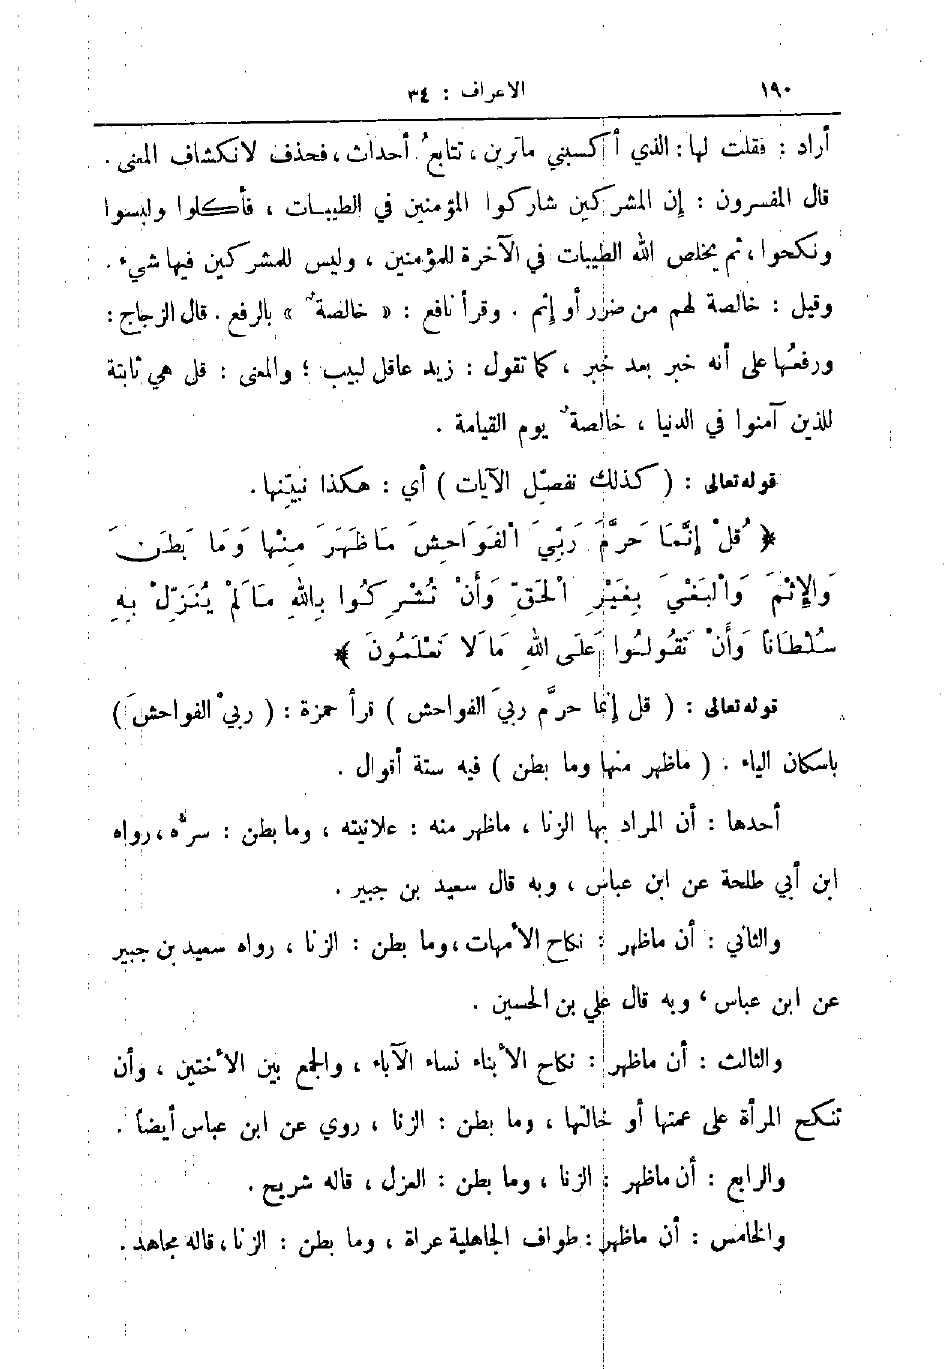 ١٩٠
الاعراف : ٣٤
أراد : فقلت لها : الذي أكسبني ماترين ، تتابعُ أحداث ، فحذف لانكشاف المعنى .
قال المفسرون : إن المشركين شاركوا المؤمنين في الطيبات ، فأكلوا ولبسوا
ونكحوا ، ثم يخلص الله الطيبات في الآخرة للمؤمنين ، وليس للمشركين فيها شيء .
وقيل : خالصة لهم من ضرر أو إثم . وقرأ نافع : « خالصةٌ » بالرفع . قال الزجاج :
ورفعُها على أنه خبر بعد خبر ، كما تقول : زيد عاقل لبيب ؛ والمعنى : قل هي ثابتة
للذين آمنوا في الدنيا ، خالصةٌ يوم القيامة .
قوله تعالى : ( كذلك نفصّل الآيات ) أي : هكذا نبيّنها .
﴿ قُلْ إِنَّمَا حَرَّمَ رَبِّيَ الْفَوَاحِشَ مَا ظَهَرَ مِنْهَا وَمَا بَطَنَ
وَالإِثْمَ وَالْبَغْيَ بِغَيْرِ الْحَقِّ وَأَنْ تُشْرِكُوا بِاللهِ مَا لَمْ يُنَزِّلْ بِهِ
سُلْطَاناً وَأَنْ تَقُولُوا عَلَى اللهِ مَا لَا تَعْلَمُونَ ﴾
قوله تعالى : ( قل إنما حرَّم ربيَ الفواحش ) قرأ حمزة : ( ربيْ الفواحشَ )
باسكان الياء . ( ماظهر منها وما بطن ) فيه ستة أقوال .
أحدها : أن المراد بها الزنا ، ماظهر منه : علانيته ، وما بطن : سرُّه ، رواه
ابن أبي طلحة عن ابن عباس ، وبه قال سعيد بن جبير .
والثاني : أن ماظهر : نكاح الأمهات ، وما بطن : الزنا ، رواه سعيد بن جبير
عن ابن عباس ، وبه قال علي بن الحسين .
والثالث : أن ماظهر : نكاح الأبناء نساء الآباء ، والجمع بين الأختين ، وأن
تنكح المرأة على عمتها أو خالتها ، وما بطن : الزنا ، روي عن ابن عباس أيضاً .
والرابع : أن ماظهر : الزنا ، وما بطن : العزل ، قاله شريح .
والخامس : أن ماظهر : طواف الجاهلية عراة ، وما بطن : الزنا ، قاله مجاهد .